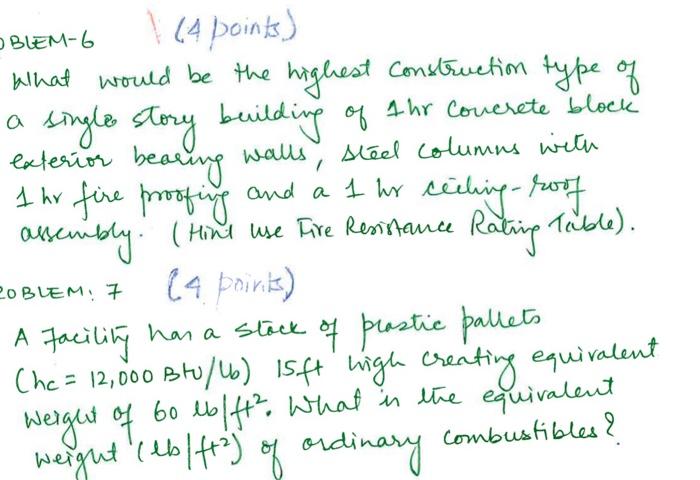 OBLEM-6 (4 points)
What would be the highest construction type of
a single story building of 1hr concrete block
exterior bearing walls, steel columns with
1 hr fire proofing and a 1 hr ceiling-roof
assembly. (Hint use Fire Resistance Rating Table).
ROBLEM: 7 (4 points)
A Facility has a stack of plastic pallets
(hc = 12,000 Btu/lb) 15ft high creating equivalent
weight of 60 lb/ft². What is the equivalent
weight (lb/ft²) of ordinary combustibles?